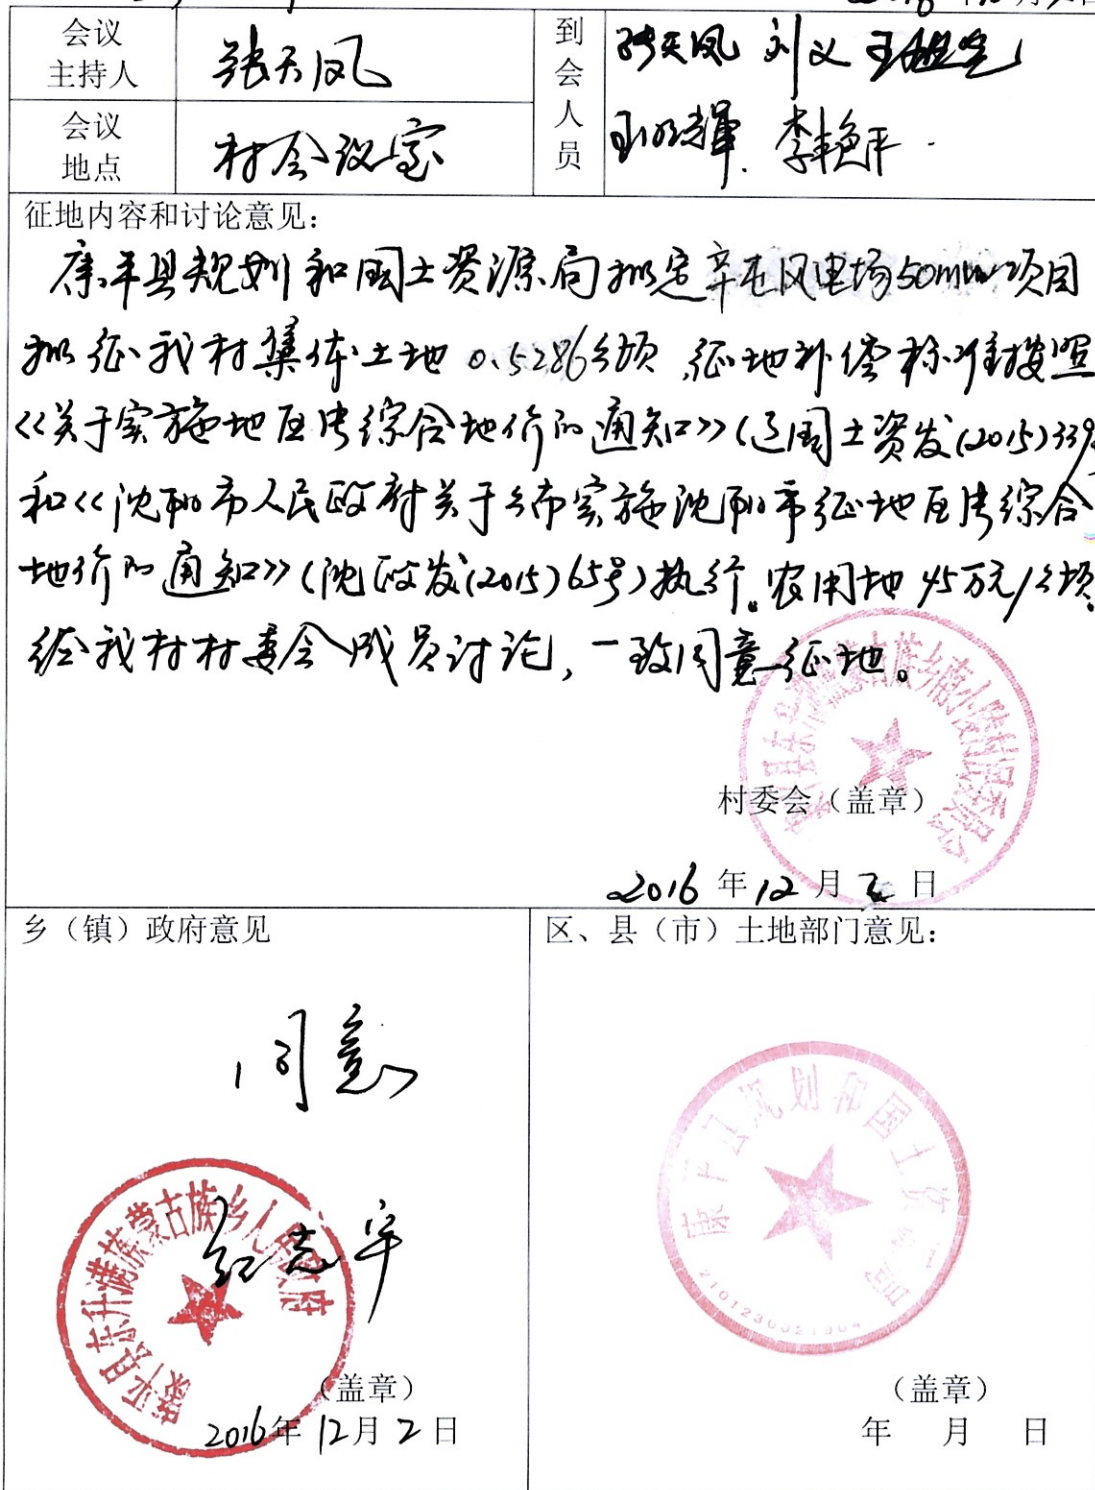 会议
主持人
张天凤
到会人员
张天凤 刘义
李艳平
会议
地点
村会议室
征地内容和讨论意见：
康平县规划和国土资源局拟定辛屯风电场50mw项目
拟征我村集体土地0.5286公顷,征地补偿标准按照
<<关于实施地区片综合地价的通知>>(辽国土资发(2015)339
和<<沈阳市人民政府关于公布实施沈阳市征地区片综合
地价的通知>>(沈政发(2015)65号)执行。农用地45万元/公顷.
经我村村委会成员讨论，一致同意征地。
村委会（盖章）
2016年12月2日
乡（镇）政府意见
同意
康平县东升满族蒙古族乡人民政府
（盖章）
2016年12月2日
区、县（市）土地部门意见：
康平县规划和国土资源局
2101230021304
（盖章）
年 月 日